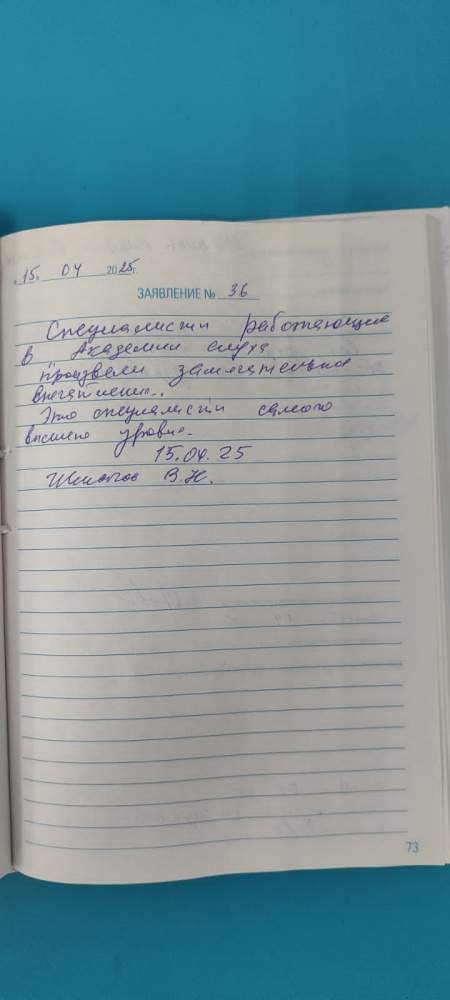 «15» 04 2025г.
ЗАЯВЛЕНИЕ № 36
Специалисты работающие
в Академии слуха
произвели замечательное
впечатление..
Это специалисты самого
высшего уровня.
15.04.25
В.Н.
73